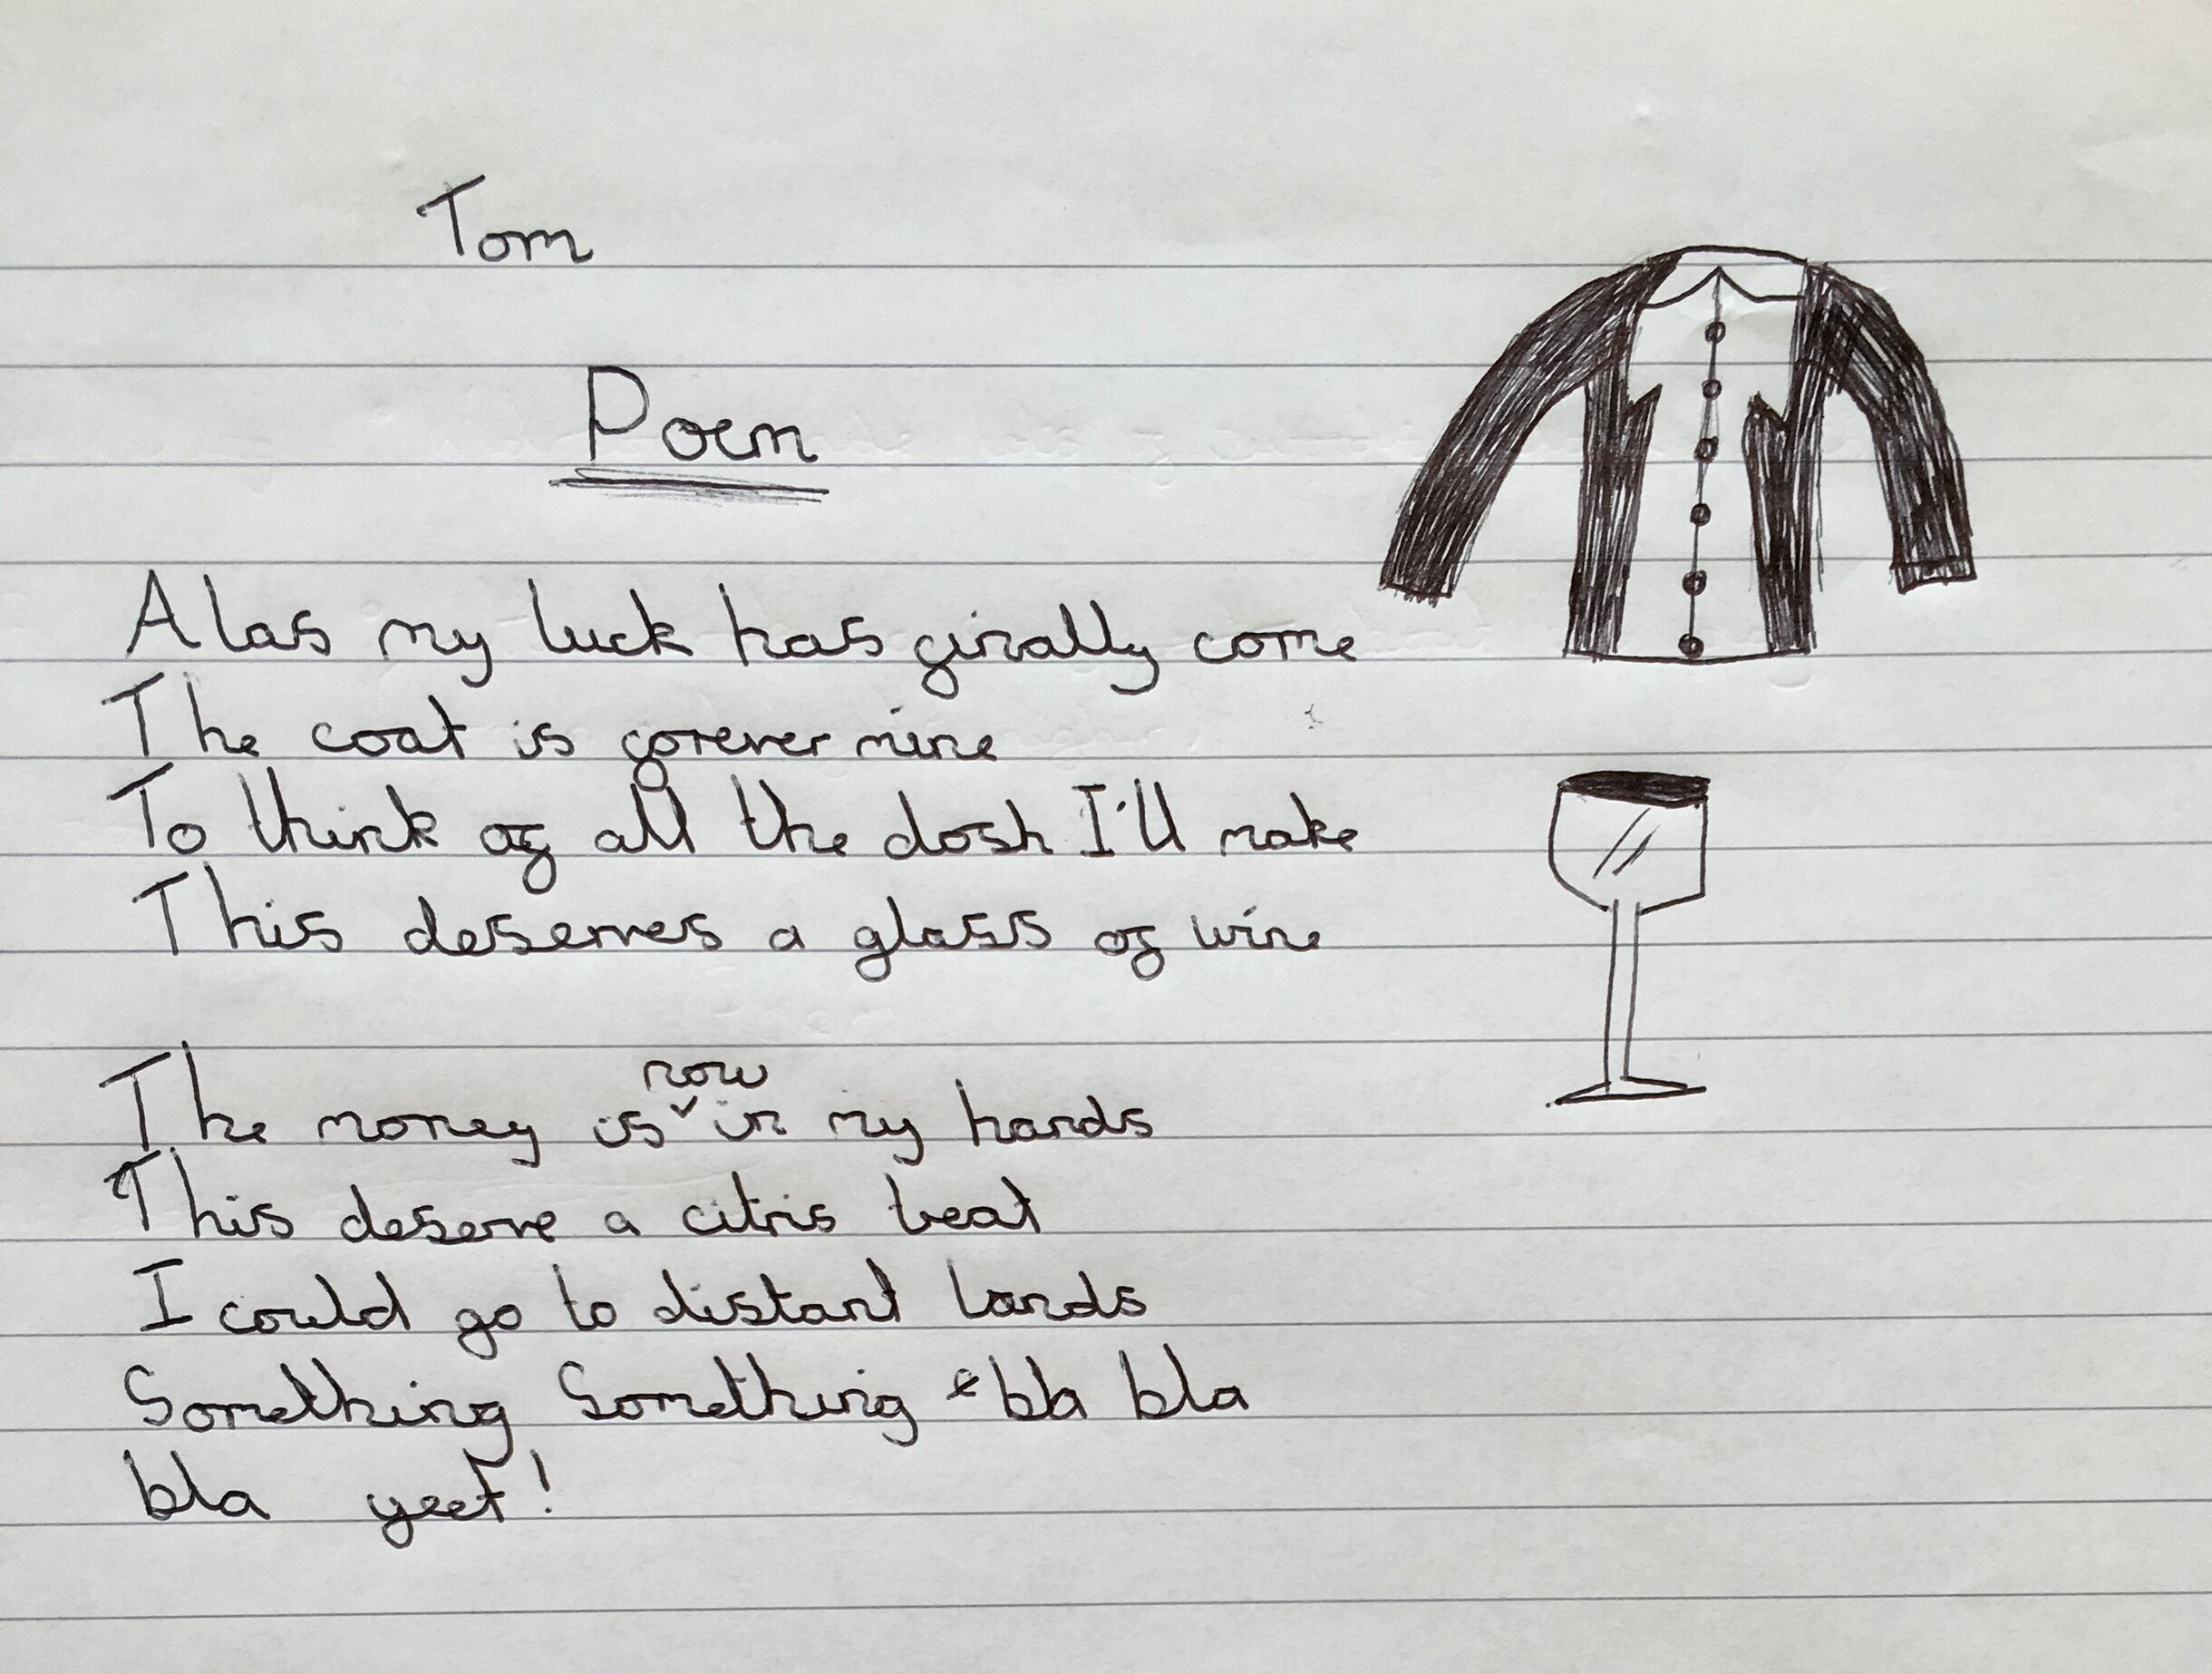 Tom
Poem
Alas my luck has finally come
The coat is forever mine
To think of all the dosh I'll make
This deserves a glass of wine
The money is now in my hands
This deserve a citris beat
I could go to distant lands
Something Something bla bla
bla yeet!